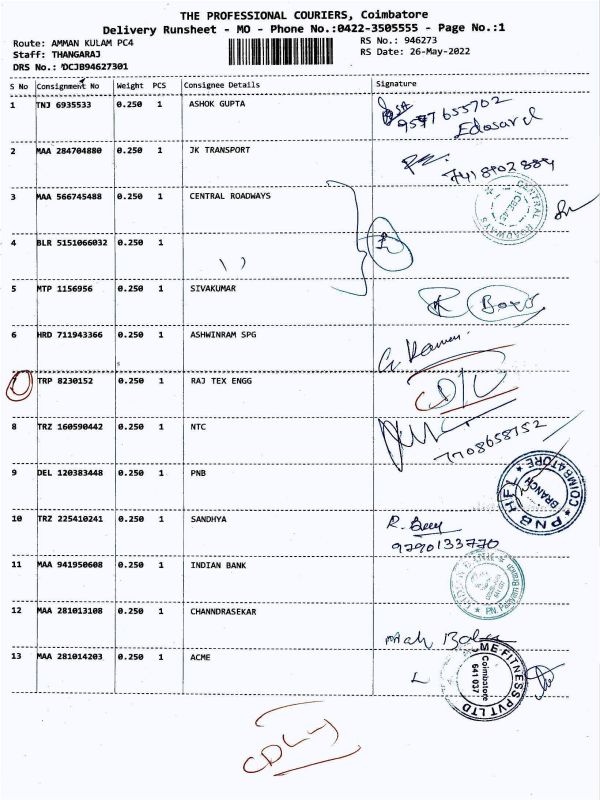 THE PROFESSIONAL COURIERS, Coimbatore
Delivery Runsheet - MO - Phone No.:0422-3505555 - Page No.:1
Route: AMMAN KULAM PC4 RS No.: 946273
Staff: THANGARAJ RS Date: 26-May-2022
DRS No.: DCJB94627301
S No Consignment No Weight PCS Consignee Details Signature
1 TNJ 6935533 0.250 1 ASHOK GUPTA
9577655702
2 MAA 284704880 0.250 1 JK TRANSPORT
7418902884
3 MAA 566745488 0.250 1 CENTRAL ROADWAYS
CENTRAL ROADWAYS
4 BLR 5151066032 0.250 1
5 MTP 1156956 0.250 1 SIVAKUMAR
6 HRD 711943366 0.250 1 ASHWINRAM SPG
7 TRP 8230152 0.250 1 RAJ TEX ENGG
8 TRZ 160590442 0.250 1 NTC
7708658752
9 DEL 120383448 0.250 1 PNB
PNB HFL COIMBATORE
BRANCH
10 TRZ 225410241 0.250 1 SANDHYA
9790133770
11 MAA 941950608 0.250 1 INDIAN BANK
12 MAA 281013108 0.250 1 CHANNDRASEKAR
13 MAA 281014203 0.250 1 ACME
ACME FITNESS PVT LTD
Coimbatore
641 037